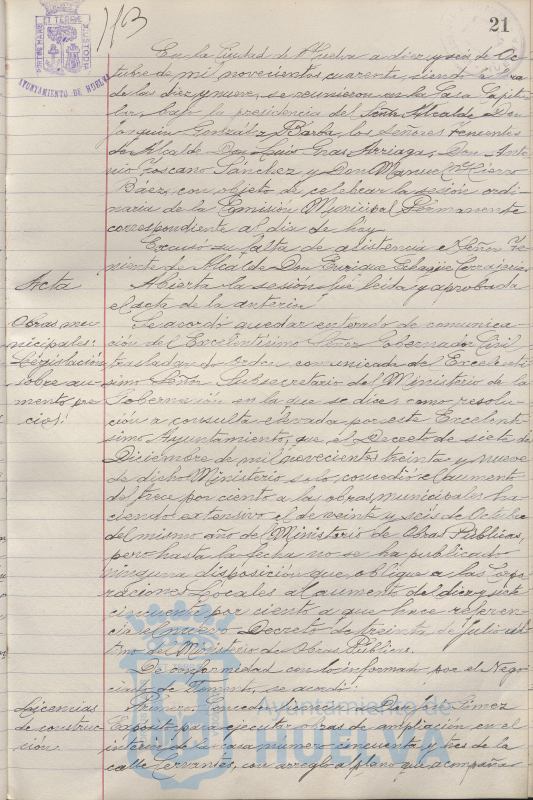 113
21
AYUNTAMIENTO DE HUELVA
En la Ciudad de Huelva a diez y seis de Oc-
tubre de mil novecientos cuarenta, siendo la hora
de las diez y nueve, se reunieron en la Casa Capitu-
lar, bajo la presidencia del Señor Alcalde Don
Joaquín González Barba, los Señores Tenientes
de Alcalde Don Luis Gras Arriaga, Don Anto-
nio Toscano Sánchez y Don Manuel Hierro
Báez, con objeto de celebrar la sesión ordi-
naria de la Comisión Municipal Permanente
correspondiente al día de hoy.
Excusó su falta de asistencia el Señor Te-
niente de Alcalde Don Enrique
Acta
Abierta la sesión fué leída y aprobada
el acta de la anterior.
Obras mu-
nicipales:
Legislación
sobre au-
mento pre-
cios.
Se acordó quedar enterado de comunica-
ción del Excelentísimo Señor Gobernador Civil
trasladando orden comunicada del Excelentí-
simo Señor Subsecretario del Ministerio de la
Gobernación en la que se dice, como resolu-
ción a consulta elevada por este Excelentí-
simo Ayuntamiento, que el Decreto de siete de
Diciembre de mil novecientos treinta y nueve
de dicho Ministerio solo concedió el aumento
del trece por ciento a las obras municipales ha-
ciendo extensivo el de veinte y seis de Octubre
del mismo año del Ministerio de Obras Públicas,
pero hasta la fecha no se ha publicado
ninguna disposición que obligue a las Corpo-
raciones Locales al aumento del diez y
cincuenta por ciento a que hace referen-
cia el nuevo Decreto de treinta de Julio
del Ministerio de Obras Públicas.
De conformidad con lo informado por el Nego-
ciado de Fomento, se acordó:
Licencias
de construc-
ción.
Primero: Conceder licencia a Don Gómez
Expósito para ejecutar obras de ampliación en el
interior de la casa número cincuenta y tres de la
calle Cervantes, con arreglo a plano que acompaña
Ayuntamiento de
HUELVA